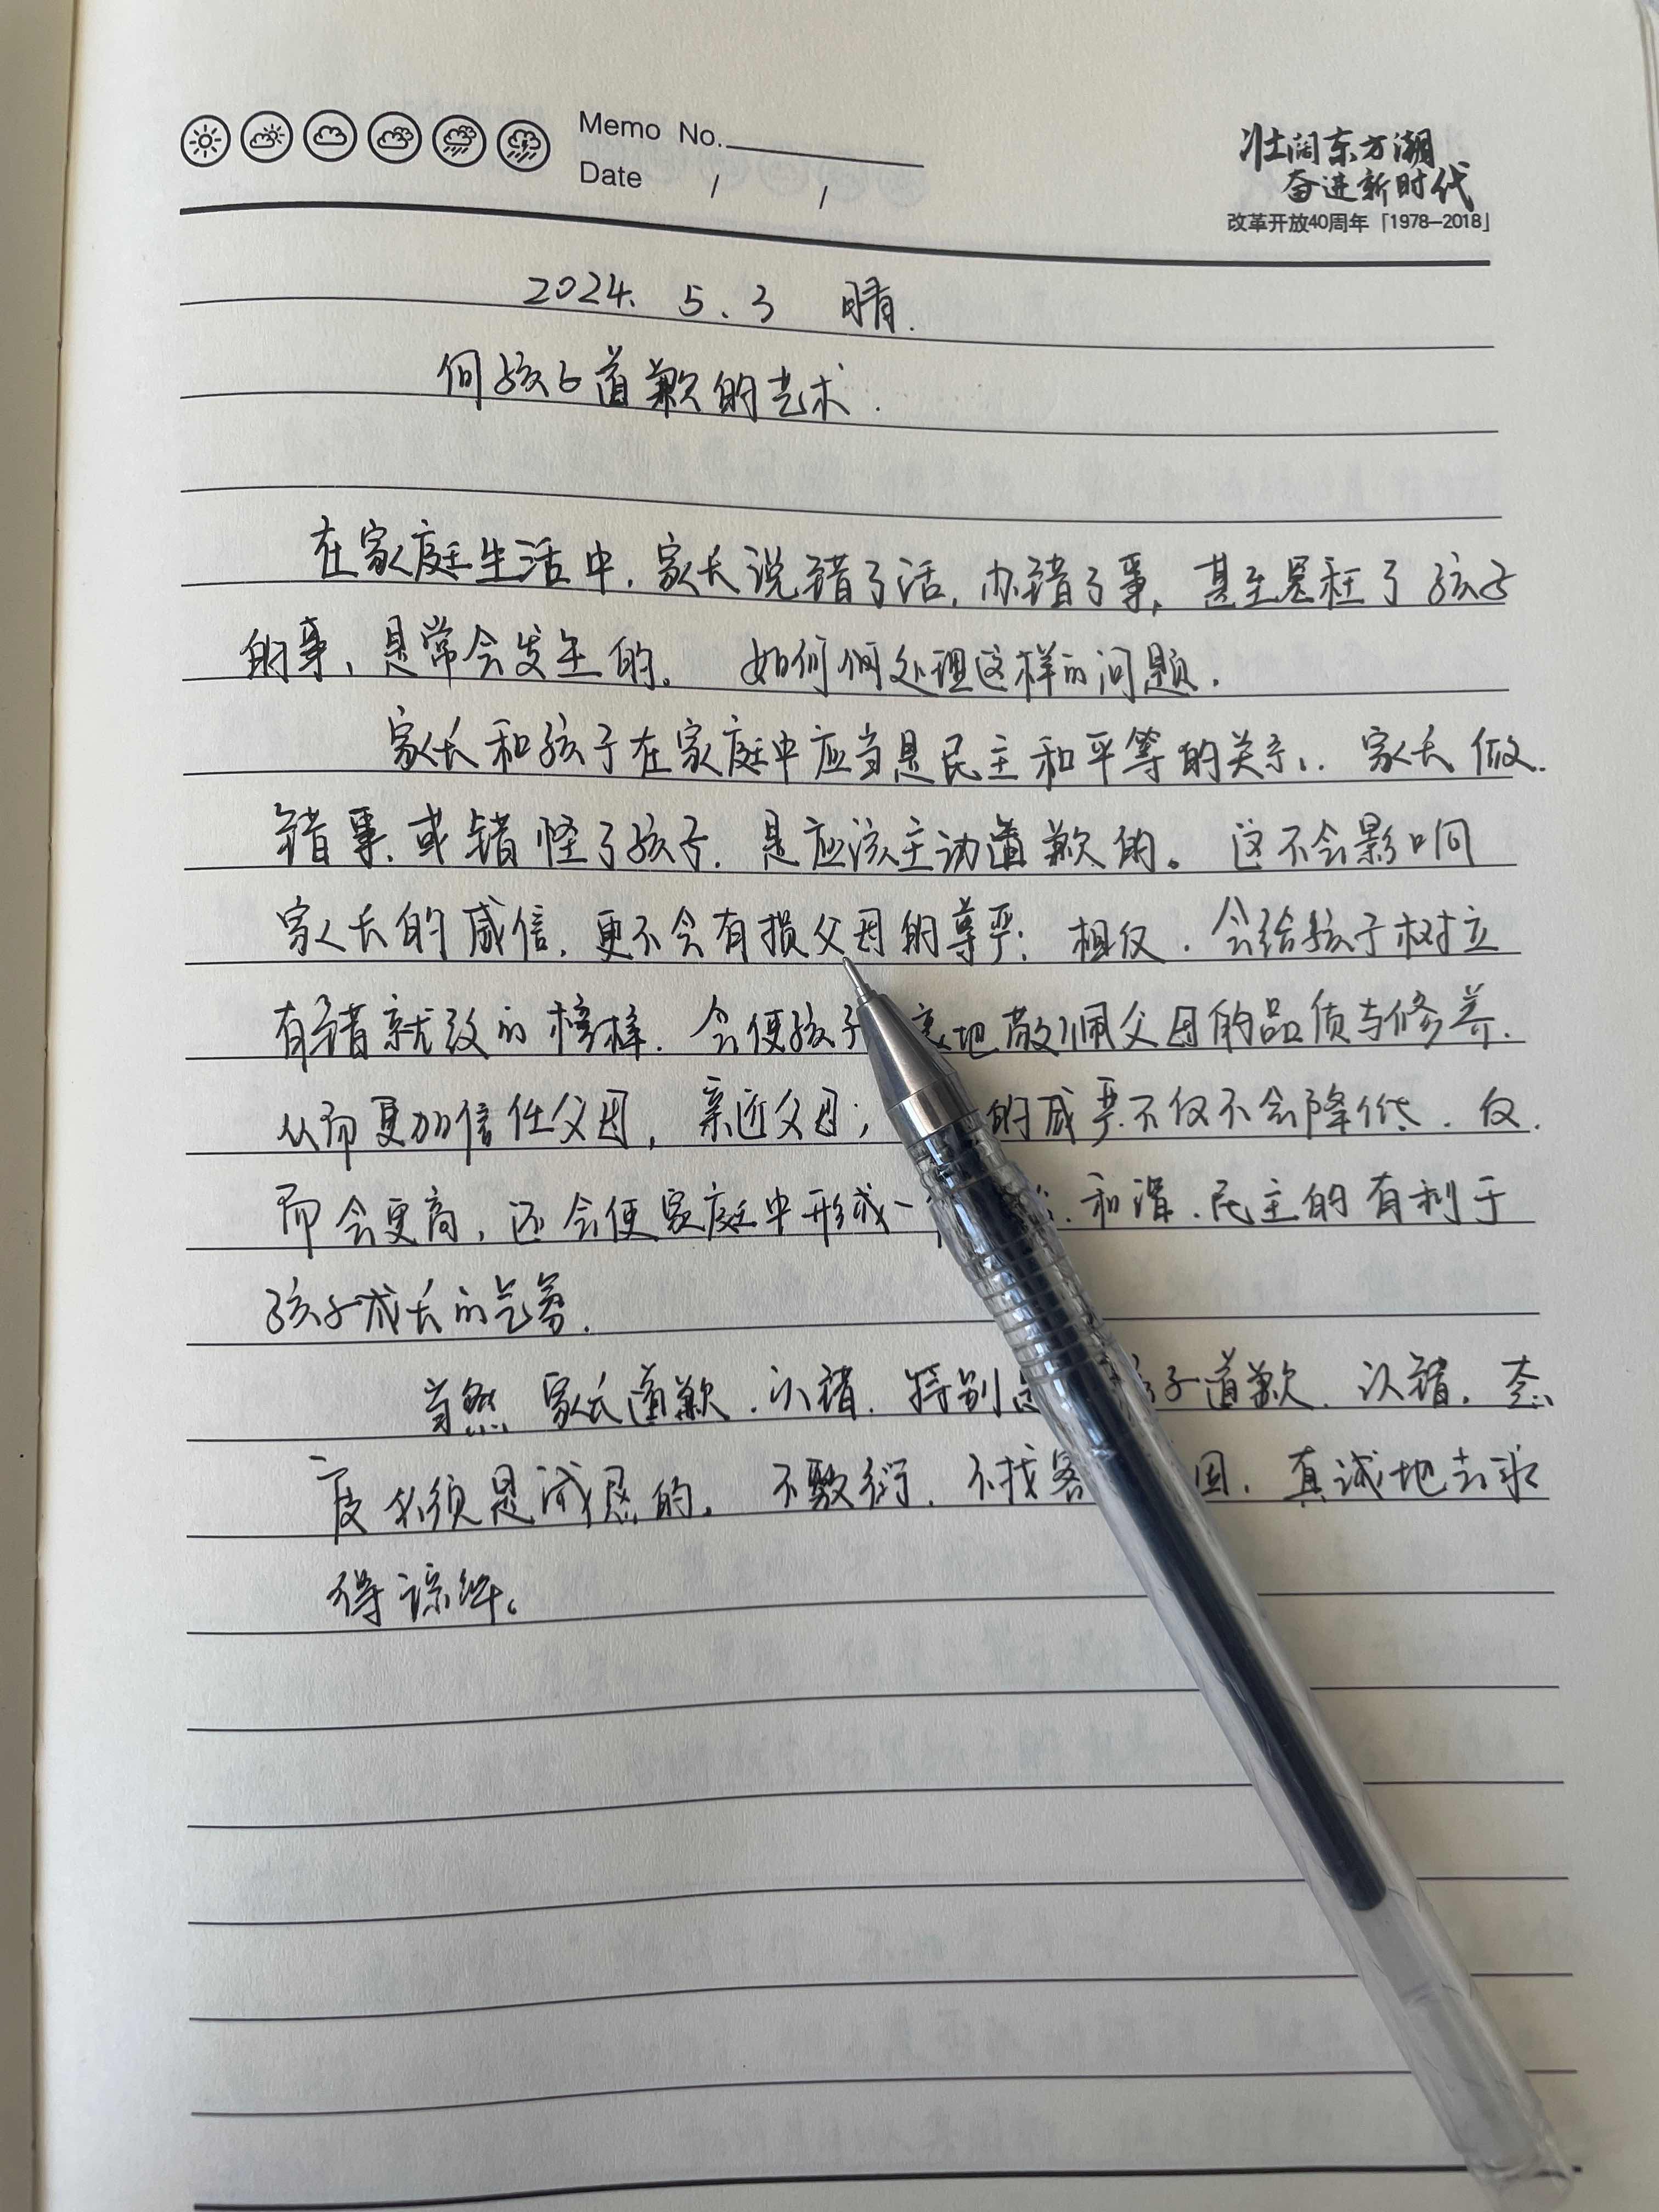 Memo No.
Date / /
壮阔东方潮
奋进新时代
改革开放40周年「1978—2018」
2024. 5.3 晴.
向孩子道歉的艺术.
在家庭生活中,家长说错了话,办错了事,甚至冤枉了孩子
的事,是常会发生的。如何处理这样的问题.
家长和孩子在家庭中应当是民主和平等的关系,家长做
错事,或错怪了孩子,是应该主动道歉的。这不会影响
家长的威信,更不会有损父母的尊严;相反,会给孩子树立
有错就改的榜样.会使孩子 地敬佩父母的品质与修养.
从而更加信任父母,亲近父母; 的威严不仅不会降低.反
而会更高,还会使家庭中形成一 和谐.民主的有利于
孩子成长的气氛.
当然 家长道歉.认错,特别是 子道歉.认错,态
度必须是诚恳的。不敷衍.不找客 因,真诚地去求
得谅解。